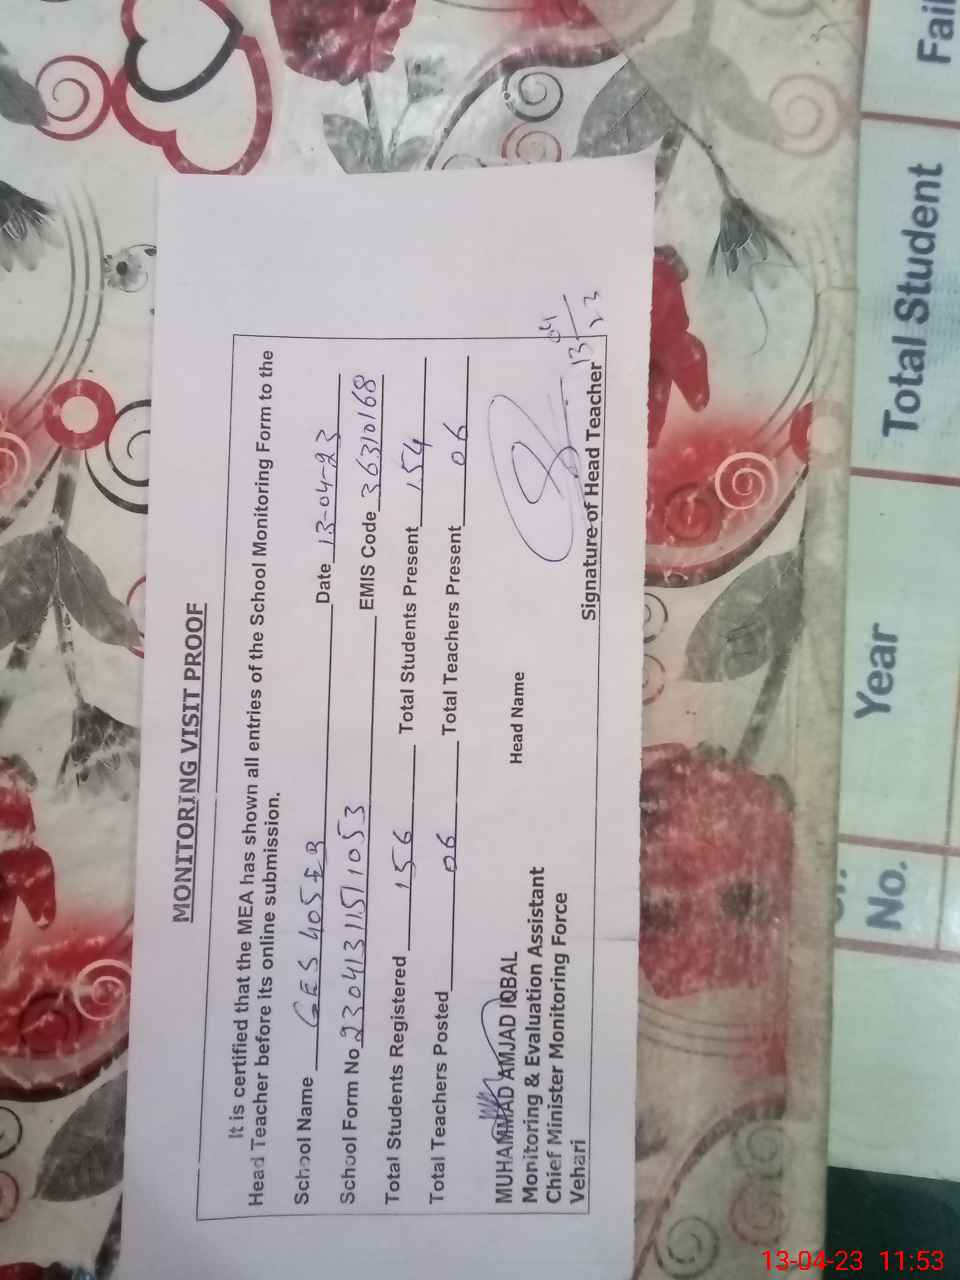 MONITORING VISIT PROOF
It is certified that the MEA has shown all entries of the School Monitoring Form to the
Head Teacher before its online submission.
School Name GES 405 EB Date 13-04-23
School Form No 23041311571053 EMIS Code 36310168
Total Students Registered 156 Total Students Present 154
Total Teachers Posted 06 Total Teachers Present 06
MUHAMMAD AMJAD IQBAL
Monitoring & Evaluation Assistant
Chief Minister Monitoring Force
Vehari
Head Name
Signature of Head Teacher
13/04/23
No. Year Total Student Fail
13-04-23 11:53